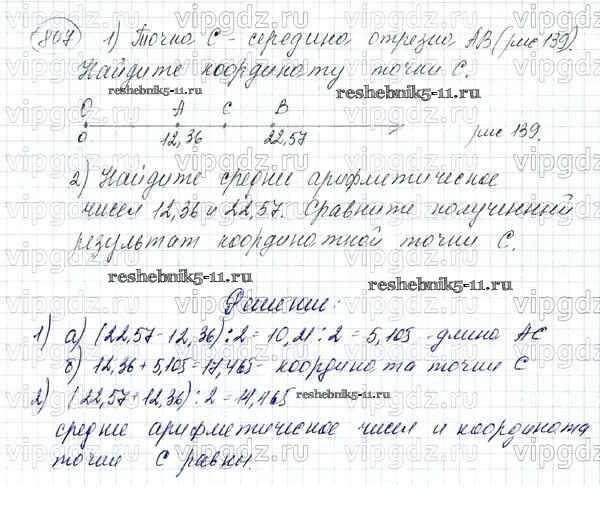 807 1) Точка С - середина отрезка АВ (рис 139).
Найдите координату точки С.
reshebnik5-11.ru
О А С В
0 12,36 22,57 рис 139.
2) Найдите среднее арифметическое
чисел 12,36 и 22,57. Сравните полученный
результат координатной точки С.
reshebnik5-11.ru
Решение:
1) а) (22,57-12,36):2=10,21:2=5,105 - длина АС
б) 12,36+5,105=17,465 - координата точки С
2) (22,57+12,36):2=14,465 reshebnik5-11.ru
средне арифметическое чисел и координата
точки С равны.
vipgdz.ru